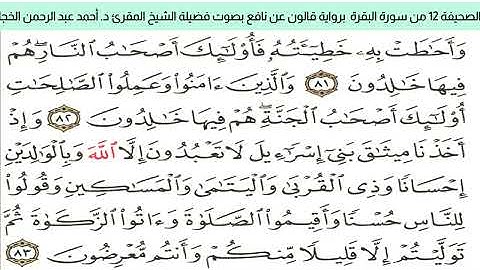 الصحيفة 12 من سورة البقرة برواية قالون عن نافع بصوت فضيلة الشيخ المقرئ د. أحمد عبد الرحمن الخجا
وَأَحَاطَتْ بِهِۦ خَطِيٓـَٔتُهُۥ فَأُوْلَٰٓئِكَ أَصْحَابُ النَّارِ هُمْ
فِيهَا خَالِدُونَ ٨١ وَالَّذِينَ ءَامَنُوا وَعَمِلُوا الصَّالِحَاتِ
أُوْلَٰٓئِكَ أَصْحَابُ الْجَنَّةِ هُمْ فِيهَا خَالِدُونَ ٨٢ وَإِذْ
أَخَذْنَا مِيثَاقَ بَنِي إِسْرَآءِيلَ لَا تَعْبُدُونَ إِلَّا اللَّهَ وَبِالْوَالِدَيْنِ
إِحْسَانًا وَذِي الْقُرْبَىٰ وَالْيَتَامَىٰ وَالْمَسَاكِينِ وَقُولُوا
لِلنَّاسِ حُسْنًا وَأَقِيمُوا الصَّلَوٰةَ وَءَاتُوا الزَّكَوٰةَ ثُمَّ
تَوَلَّيْتُمْ إِلَّا قَلِيلًا مِّنكُمْ وَأَنتُم مُّعْرِضُونَ ٨٣